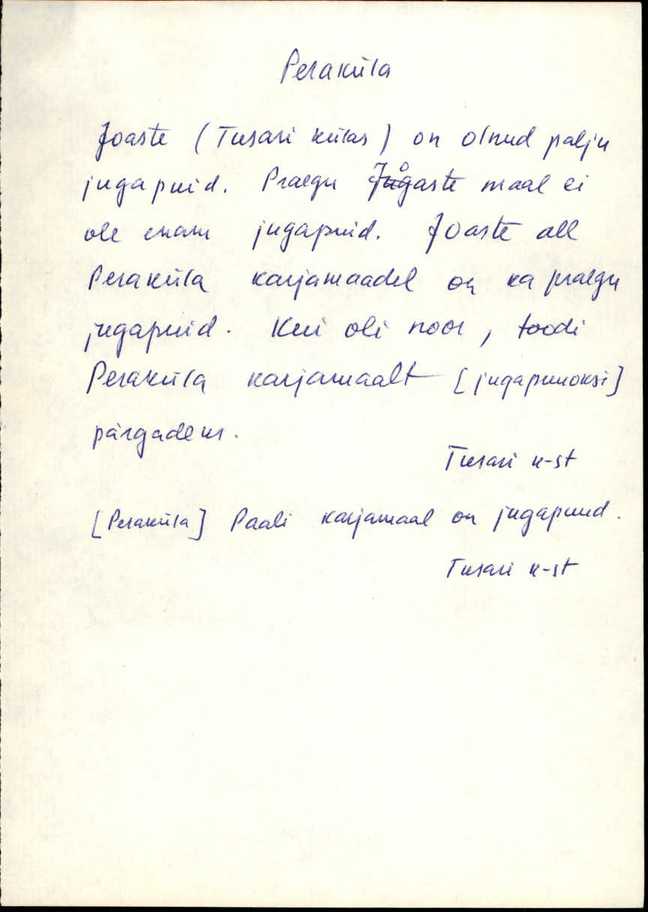 Peraküla
Joaste (Tusari külas) on olnud palju
jugapuid. Praegu Joaste maal ei
ole enam jugapuid. Joaste all
Peraküla karjamaadel on ka praegu
jugapuid. Kui oli noor, toodi
Peraküla karjamaalt [jugapuuoksi]
pärgadeks.
Tusari k-st
[Peraküla] Paali karjamaal on jugapuud.
Tusari k-st